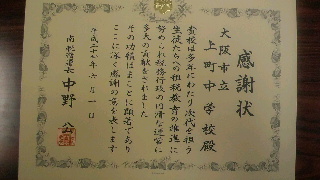 感謝状
大阪市立
上町中学校殿
貴校は多年にわたり次代を担う
生徒たちへの租税教育の推進に
努められ税務行政の円滑な運営に
多大の貢献をされました
その功績はまことに顕著であり
ここに深く感謝の意を表します
平成二十八年六月一日
南税務署長 中野 公